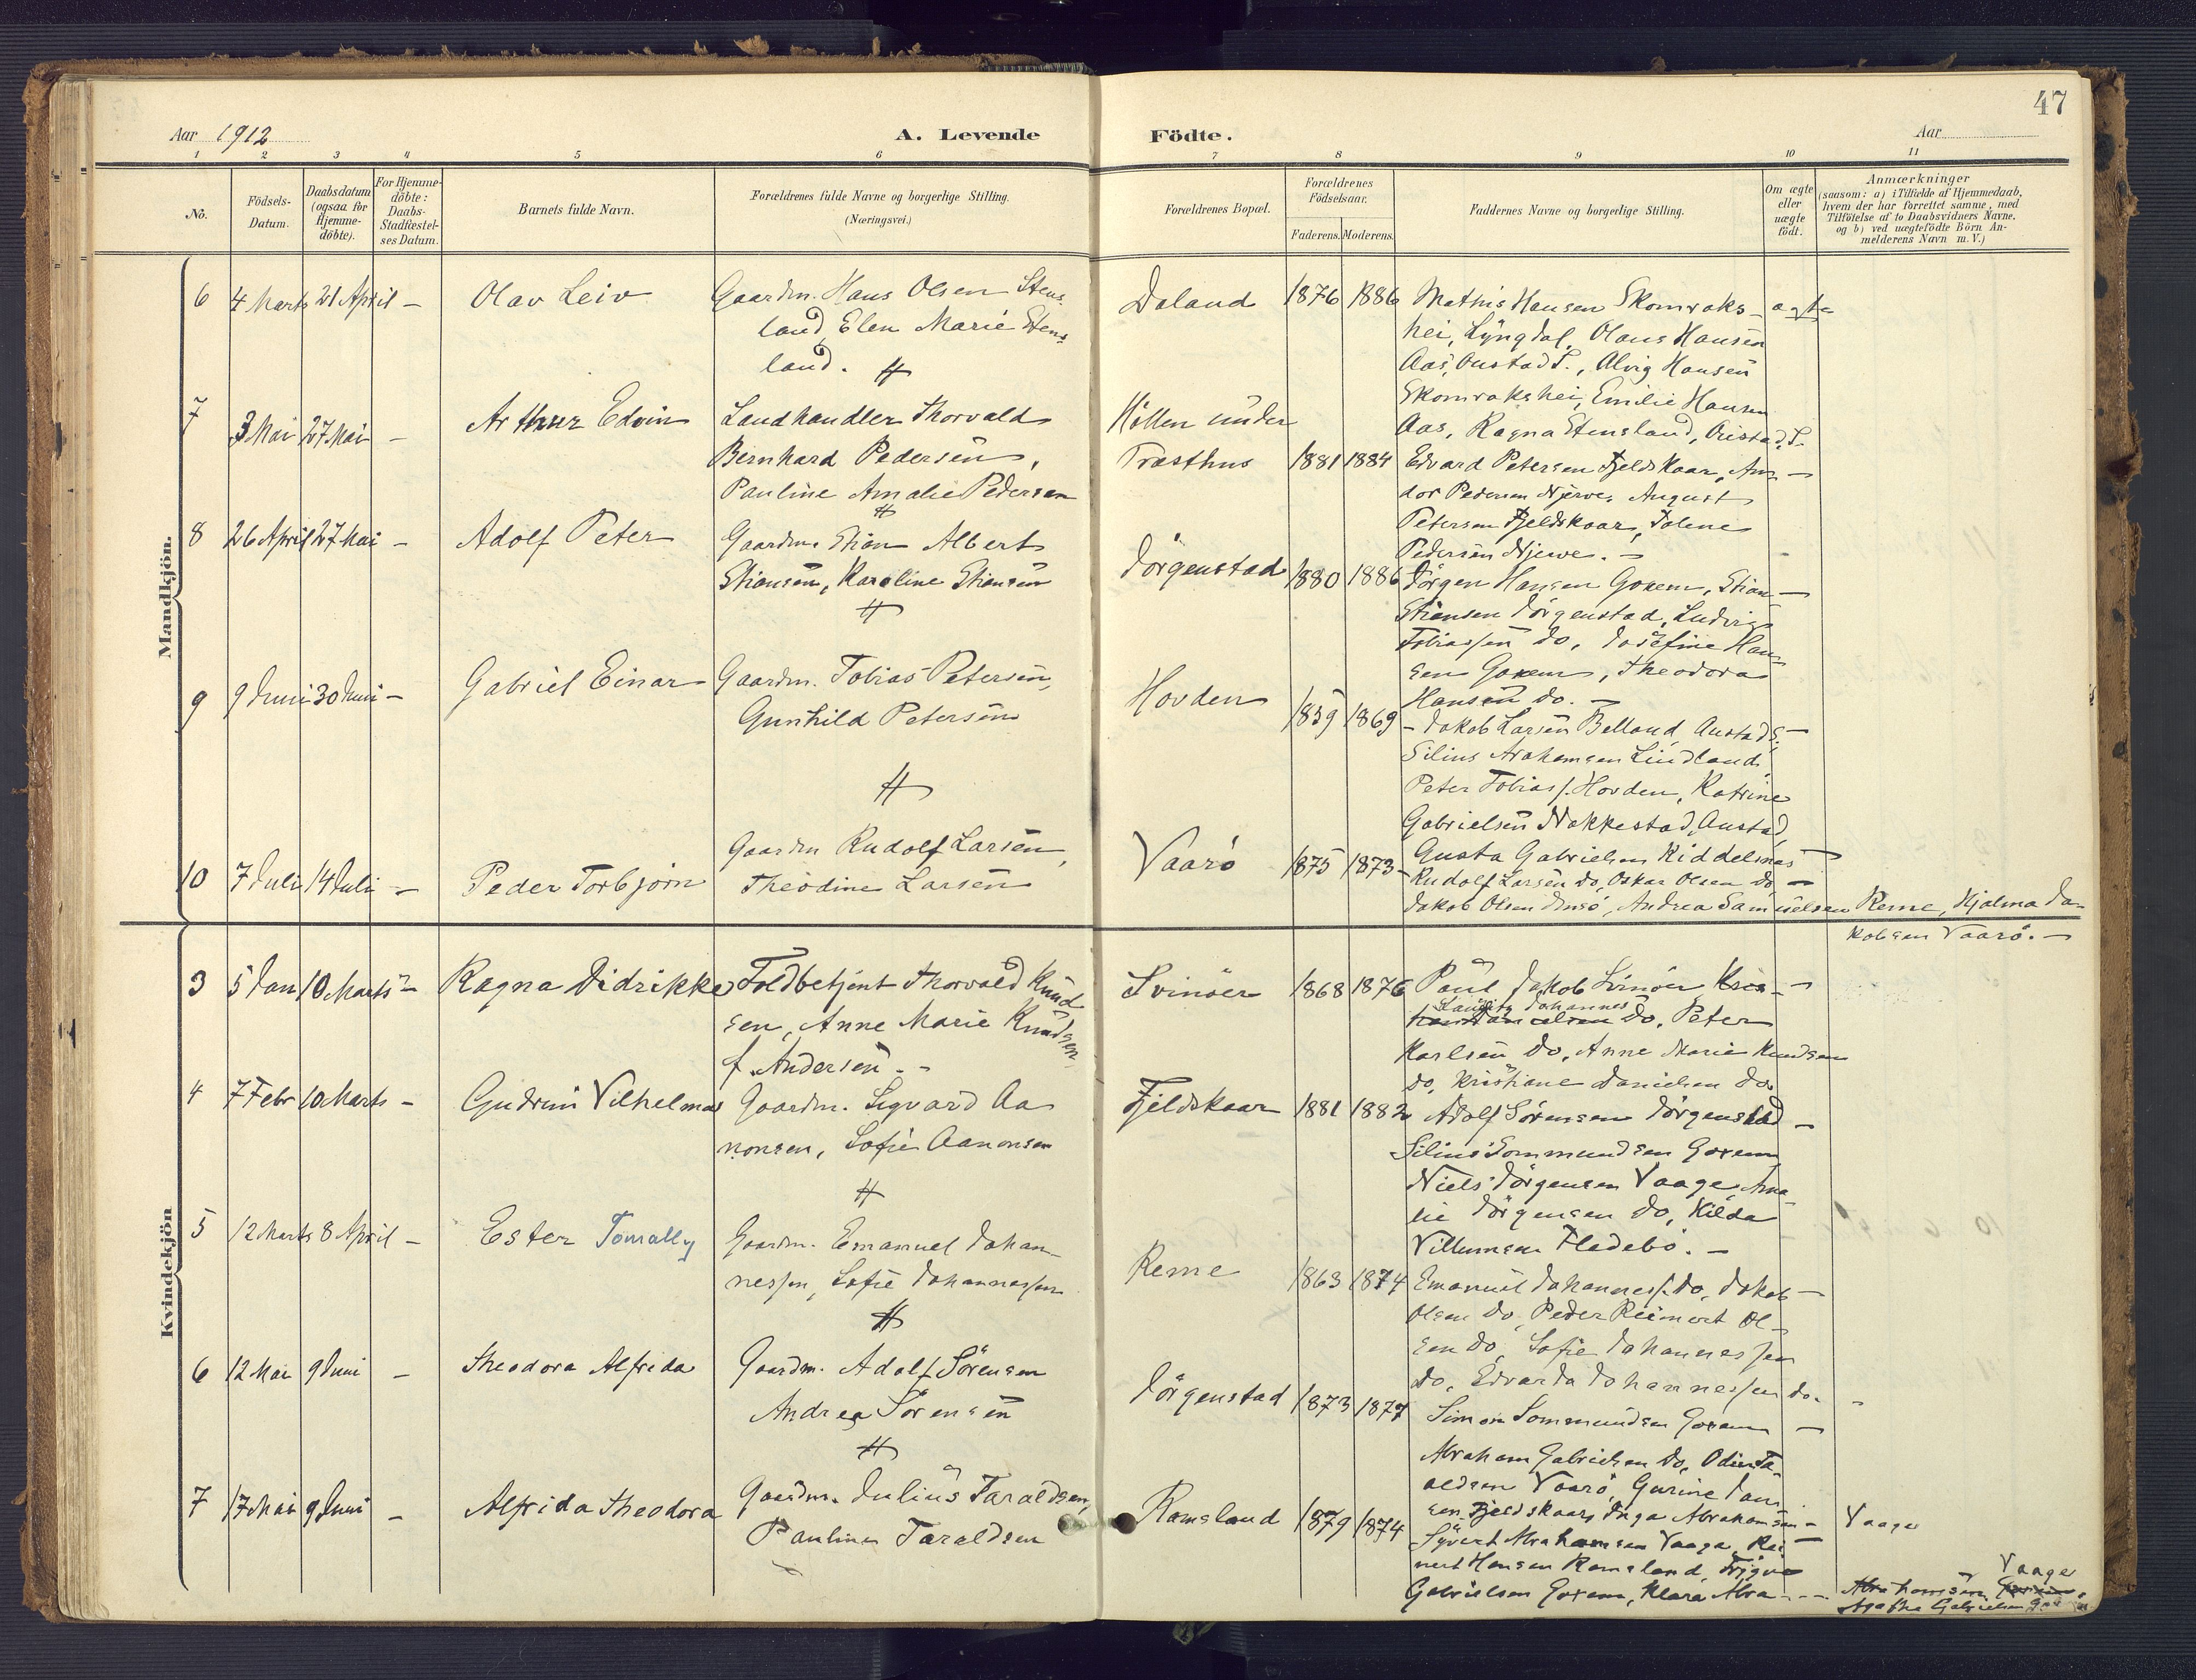 47
Aar 1912
A. Levende
Födte.
Aar
1 2 3 4 5 6 7 8 9 10 11
No.
Födsels-
Datum.
Daabsdatum
(ogsaa for
Hjemme-
döbte).
For Hjemme-
döbte:
Daabs-
Stadfæstel-
ses Datum.
Barnets fulde Navn.
Forældrenes fulde Navne og borgerlige Stilling.
(Næringsvei.)
Forældrenes Bopæl.
Forældrenes
Födselsaar.
Faderens. Moderens.
Faddernes Navne og borgerlige Stilling.
Om ægte
eller
uægte
født.
Anmærkninger
(saasom: a) i Tilfælde af Hjemmedaab,
hvem der har forrettet samme, med
Tilföielse af to Daabsvidners Navne.
og b) ved uægtefödte Börn An-
melderens Navn m. V.)
Mandkjön.
6 4 Marts 21 April – Olav Leiv
Gaardm. Hans Olsen Stens-
land, Elen Marie Stens-
land.
Daland 1876 1886
Mathis Hansen Skomraks-
hei, Lyngdal, Olaus Hansen
Aas, Austad S., Alvig Hansen
Skomrakshei, Emilie Hansen
Aas, Ragna Stensland, Austad, S.
ægte
7 3 Mai 27 Mai – Arthur Edvin
Landhandler Thorvald
Bernhard Pedersen,
Pauline Amalie Pedersen
Høllen under
Træsthus 1881 1884
Edvard Petersen Fjeldskaar, Am-
dor Pedersen Njerve, August
Petersen Fjeldskaar, Tolene
Pedersen Njerve. –
8 26 April 27 Mai – Adolf Peter
Gaardm. Stian Albert
Stiansen, Karoline Stiansen
Jörgenstad 1880 1886
Jörgen Hansen Goxem, Stian
Stiansen Jörgenstad, Ludvig
Tobiassen do, Josefine Han-
sen Goxem, Theodora
Hansen do. –
9 9 Juni 30 Juni – Gabriel Einar
Gaardm. Tobias Petersen,
Gunhild Petersen
Hovden 1859 1869
– Jakob Larsen Belland Austad S.,
Silius Arahamsen Lindland,
Peter Tobiass. Hovden, Katrine
Gabrielsen Nakkestad, Austad,
Gusta Gabrielsen Kiddelsnes
10 7 Juli 14 Juli – Peder Torbjörn
Gaardm Rudolf Larsen,
Theodine Larsen
Vaarö 1875 1873
Rudolf Larsen do, Oskar Olsen do,
Jakob Olsen Imsö, Andrea Samuelsen Reme, Hjalma Ja-
kobsen Vaarö. –
Kvindekjön
3 5 Jan 10 Marts – Ragna Didrikke
Toldbetjent Thorvald Knud-
sen, Anne Marie Knudsen
f. Andersen. –
Svinöer 1868 1876
Paul Jakob Svinöer Kris-
Lauritz Johannes
do, Peter
Karlsen do, Anne Marie Knudsen
do, Kristiane Danielsen do.
4 7 Febr 10 Marts – Gudrun Vilhelma
Gaardm. Sigvard Aa-
nonsen, Sofie Aanonsen
Fjeldskaar 1881 1882
Adolf Sörensen Jörgenstad
Silius Sommundsen Goxem
Niels Jörgensen Vaage, Ama-
lie Jörgensen do, Hilda
Villumsen Fladebö. –
5 12 Marts 8 April – Ester Tomally
Gaardm. Emanuel Johan-
nessen, Sofie Johannessen
Reme 1863 1874
Emanuel Johanness. do, Jakob
Olsen do, Peder Reimert Ol-
sen do, Sofie Johannessen
do, Edvarda Johannessen do.
6 12 Mai 9 Juni – Theodora Alfrida
Gaardm. Adolf Sörensen
Andrea Sörensen
Jörgenstad 1873 1877
Simon Sommundsen Goxem
Abraham Gabrielsen do, Odin Ta-
aldsen Vaarö, Gurine Jan-
sen Fjeldskaar, Inga Abrahamsen – Vaage
7 17 Mai 9 Juni – Alfrida Theodora
Gaardm. Julius Taraldsen,
Pauline Taraldsen
Ramsland 1879 1874
Syvert Abrahamsen Vaage, Rei-
nert Hansen Ramsland, Trygve
Gabrielsen Goxem, Klara Abra-
Abrahamsen Vaage
Agathe Gabrielsen